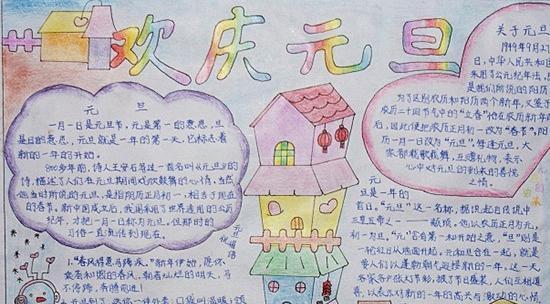 欢庆元旦
元 旦
一月一日是元旦节,元是第一的意思,旦
是日的意思,元旦就是一年的第一天,它标志着
新的一年的开始。
900多年前,诗人王安石写过一首名叫《元旦》的
诗,描述了人们在元旦期间欢欣鼓舞的心情。当然
他当时所说的元旦,是指阴历正月初一,相当于现在
的春节,新中国成立后,我国采用了世界通用的公历
纪年,才把一月一日称为元旦,但那时的
习俗一直流传到现在。
元旦祝福语
1."春风得意马蹄疾。"新年伊始,愿你
乘着和煦的春风,朝着灿烂的明天,马
不停蹄,奔腾前进!
关于元旦
1949年9月27
日,中华人民共和国
采用了公元纪年法,
是我们所说的阳历
为了区别农历和阳历两个新年,又鉴于
农历二十四节气中的"立春"恰在农历新年
后,因此便把农历正月初一改为"春节",阳
历一月一日改为"元旦"。每逢元旦,大
家都载歌载舞,互赠礼物,表示
心中对元旦的到来的喜悦
之情。
元
旦是一年的
首日。"元旦"这一名称,据说起自传说中
三皇五帝之一——颛顼。他以农历正月为元,
初一为旦。"元"含有第一和开始之意,"旦"则是
一轮红日从地面升起。元和旦合在一起,就是
要人们以蓬勃朝气迎接新的一年。这一天